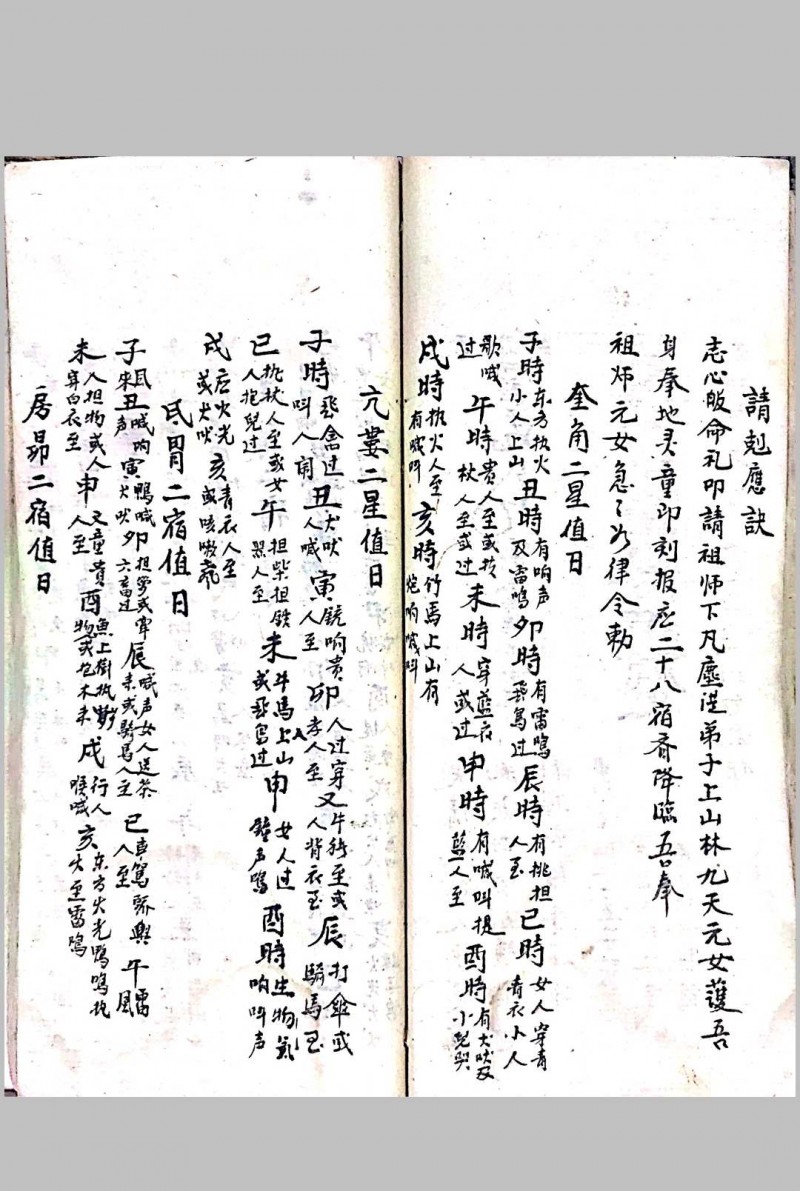 請剋應訣
志心皈命礼叩請祖师下凡塵泩弟子上山林九天元女護吾
身奉地灵童即刻报应二十八宿齐降臨吾奉
祖师元女急々如律令勅
奎角二星值日
子時东方执火小人上山丑時有响声及雷鸣卯時有雷鸣飛鳥过辰時有挑担人至巳時女人穿青青衣小人
歌喊过午時贵人至或扶杖人至或过未時穿藍衣人或过申時有喊叫提藍人至酉時有犬吠及小兒哭
戌時执火人至有喊叫亥時竹馬上山有炮响喊叫
亢婁二星值日
子時飛禽过叫人闹丑犬吠人喊寅銃响贵人至卯人过穿孝人至又牛羊至或人背衣至辰打傘或騎馬至
巳扶杖人至或女人抱兒过午担柴担鉄器人至未牛馬上山入或飛鳥过申女人过鐘声鸣酉時生物氣响叫声
戌后火光或犬吠亥青衣人至或咳嗽氣
氐胃二宿值日
子風来声丑喊响寅鴨喊犬吠卯担箩或牢六畜过辰喊声女人送茶来或騎馬人至巳喜鴛驕輿人至午雷風
未人担物或人穿白衣至申文童貴人至酉魚上樹执鬱物或包木来戌行人喉喊亥东方火光鴨鸣执火至雷鸣
房昴二宿值日